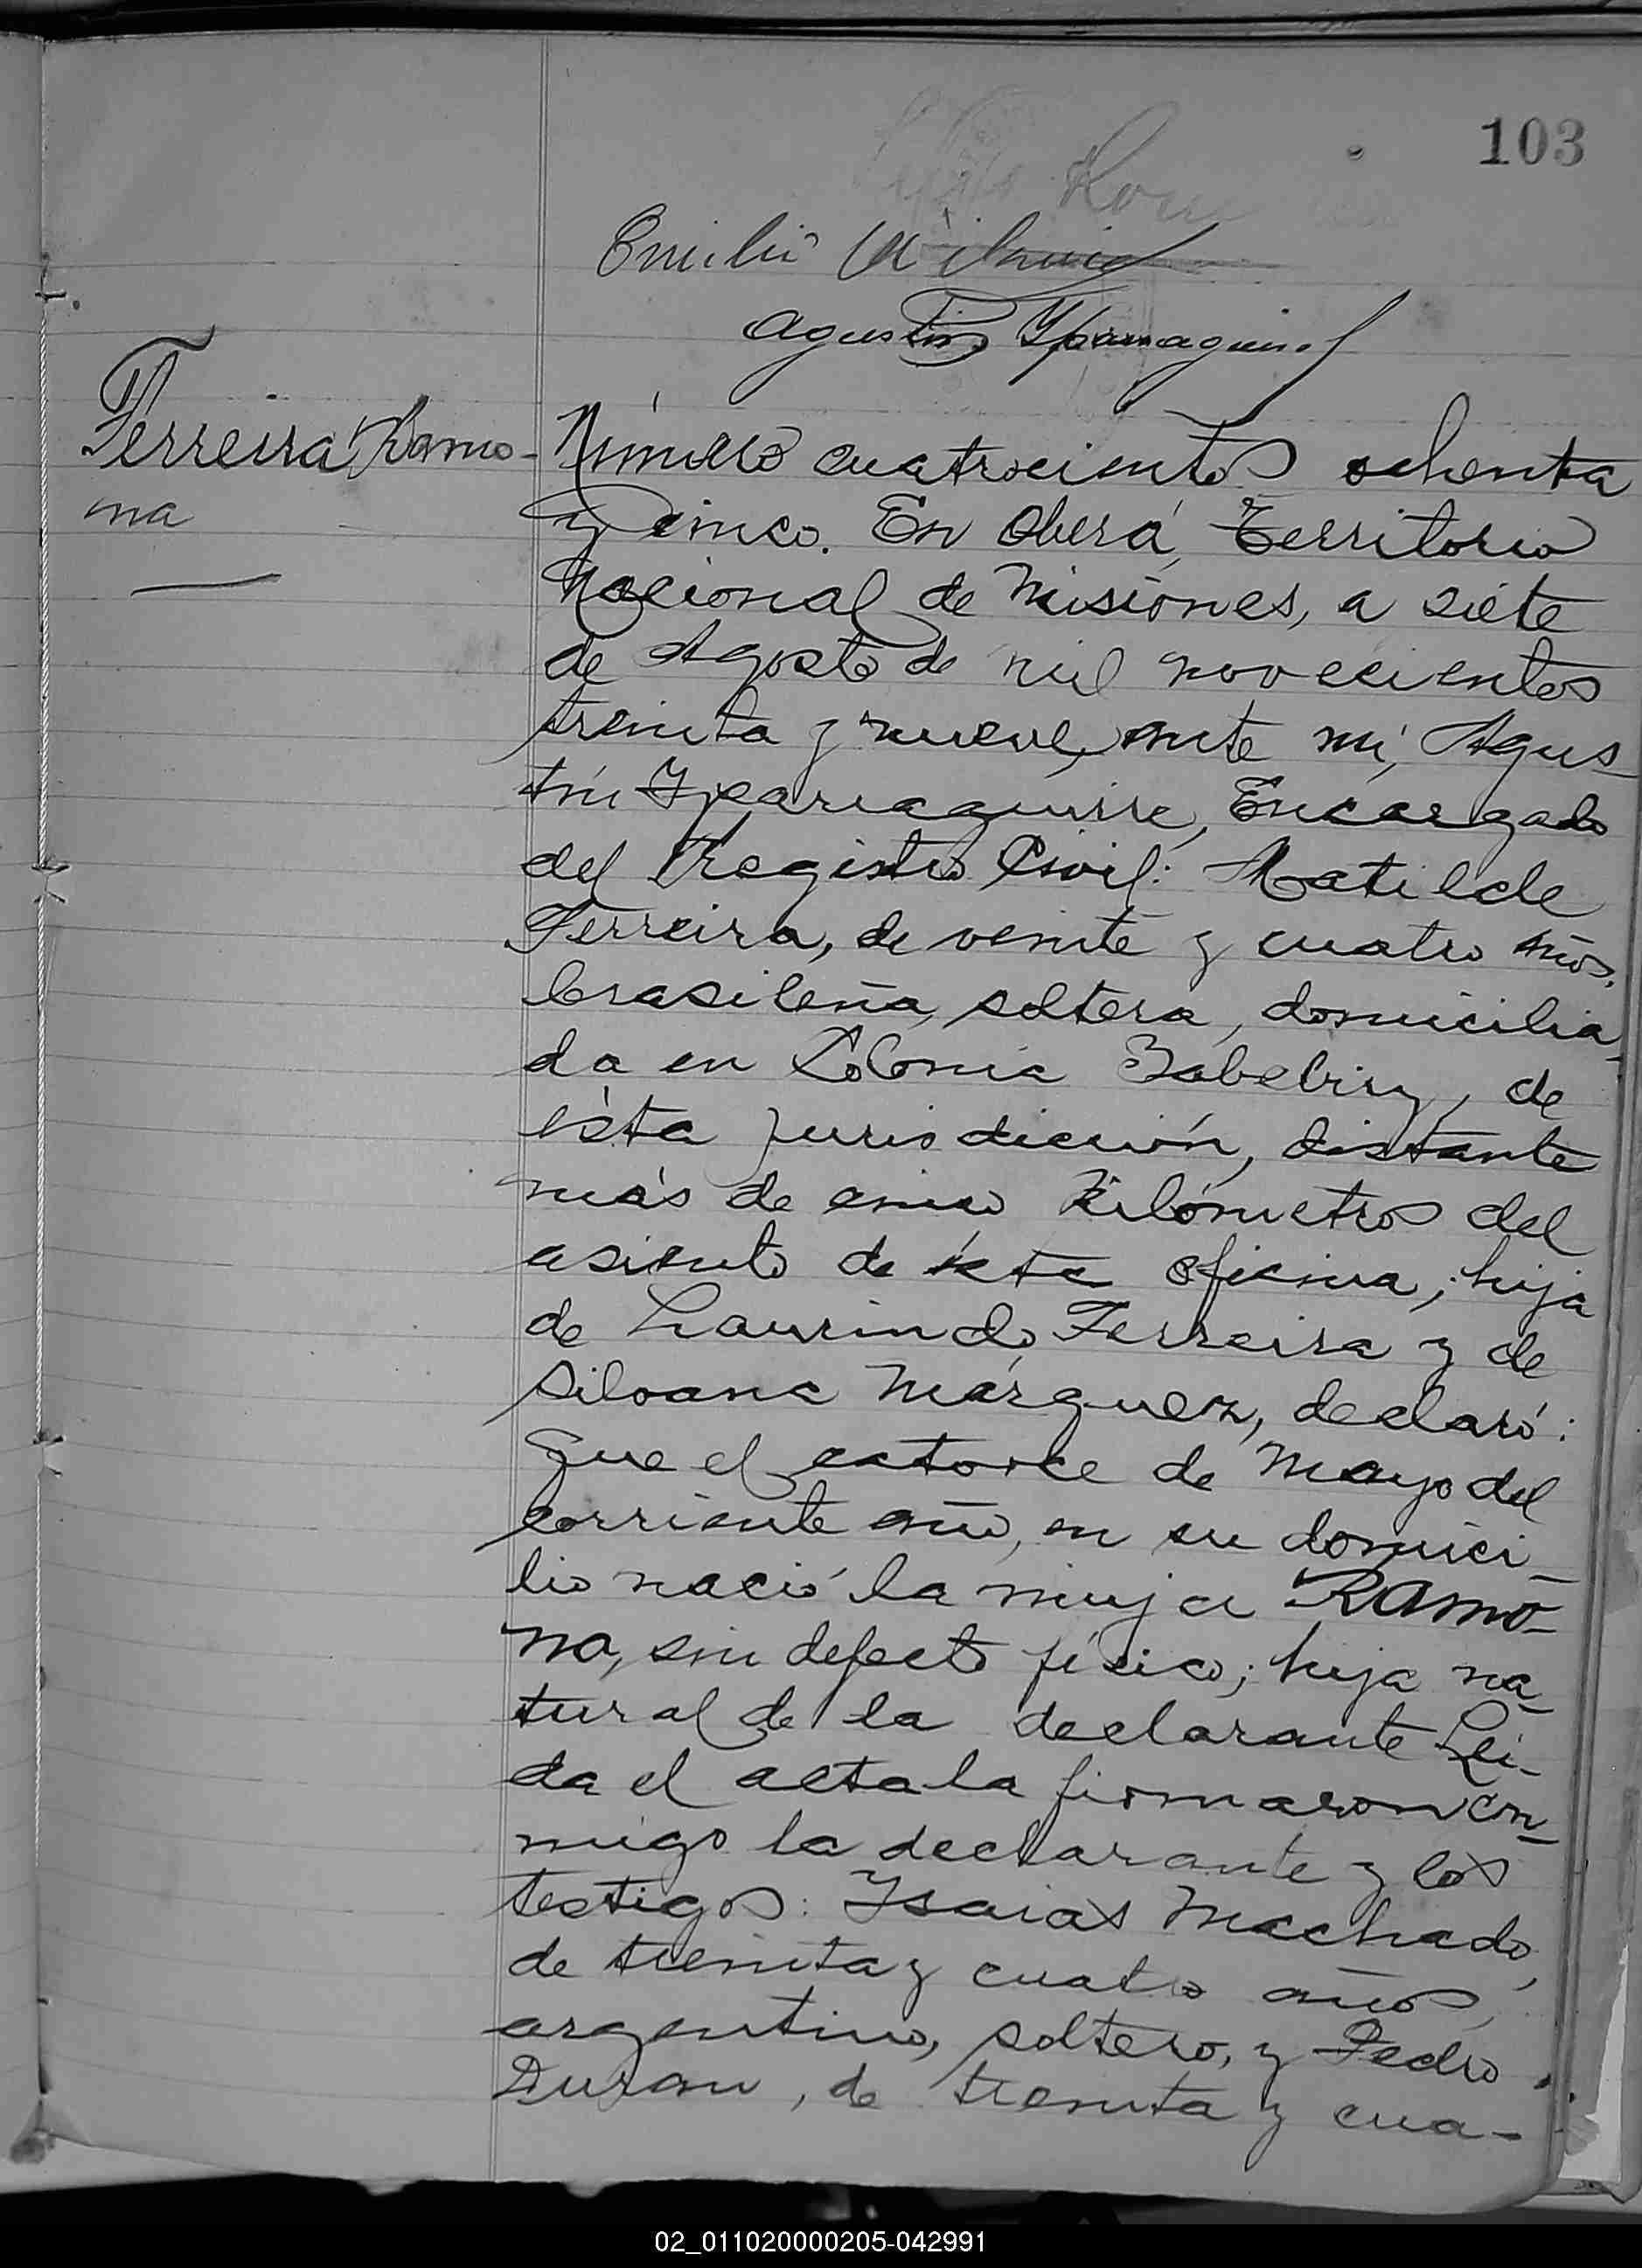 103
Emilio
Agustín Yparraguirre
Ferreira Ramo-
na
Número cuatrocientos ochenta
y cinco. En Oberá, Territorio
Nacional de Misiones, a siete
de Agosto de mil novecientos
treinta y nueve, ante mí, Agus-
tín Yparraguirre, Encargado
del Registro Civil: Matilde
Ferreira, de veinte y cuatro años,
brasileña, soltera, domicilia-
da en Colonia Yabebiry, de
ésta jurisdicción, distante
más de cinco kilómetros del
asiento de ésta oficina; hija
de Laurindo Ferreira y de
Silvana Márquez, declaró:
Que el catorce de Mayo del
corriente año, en su domici-
lio nació la mujer RAMO-
NA, sin defecto físico; hija na-
tural de la declarante. Leí-
da el acta la firmaron con-
migo la declarante y los
testigos: Ysaias Machado,
de treinta y cuatro años,
argentino, soltero, y Pedro
Duran, de treinta y cua-
02_011020000205-042991